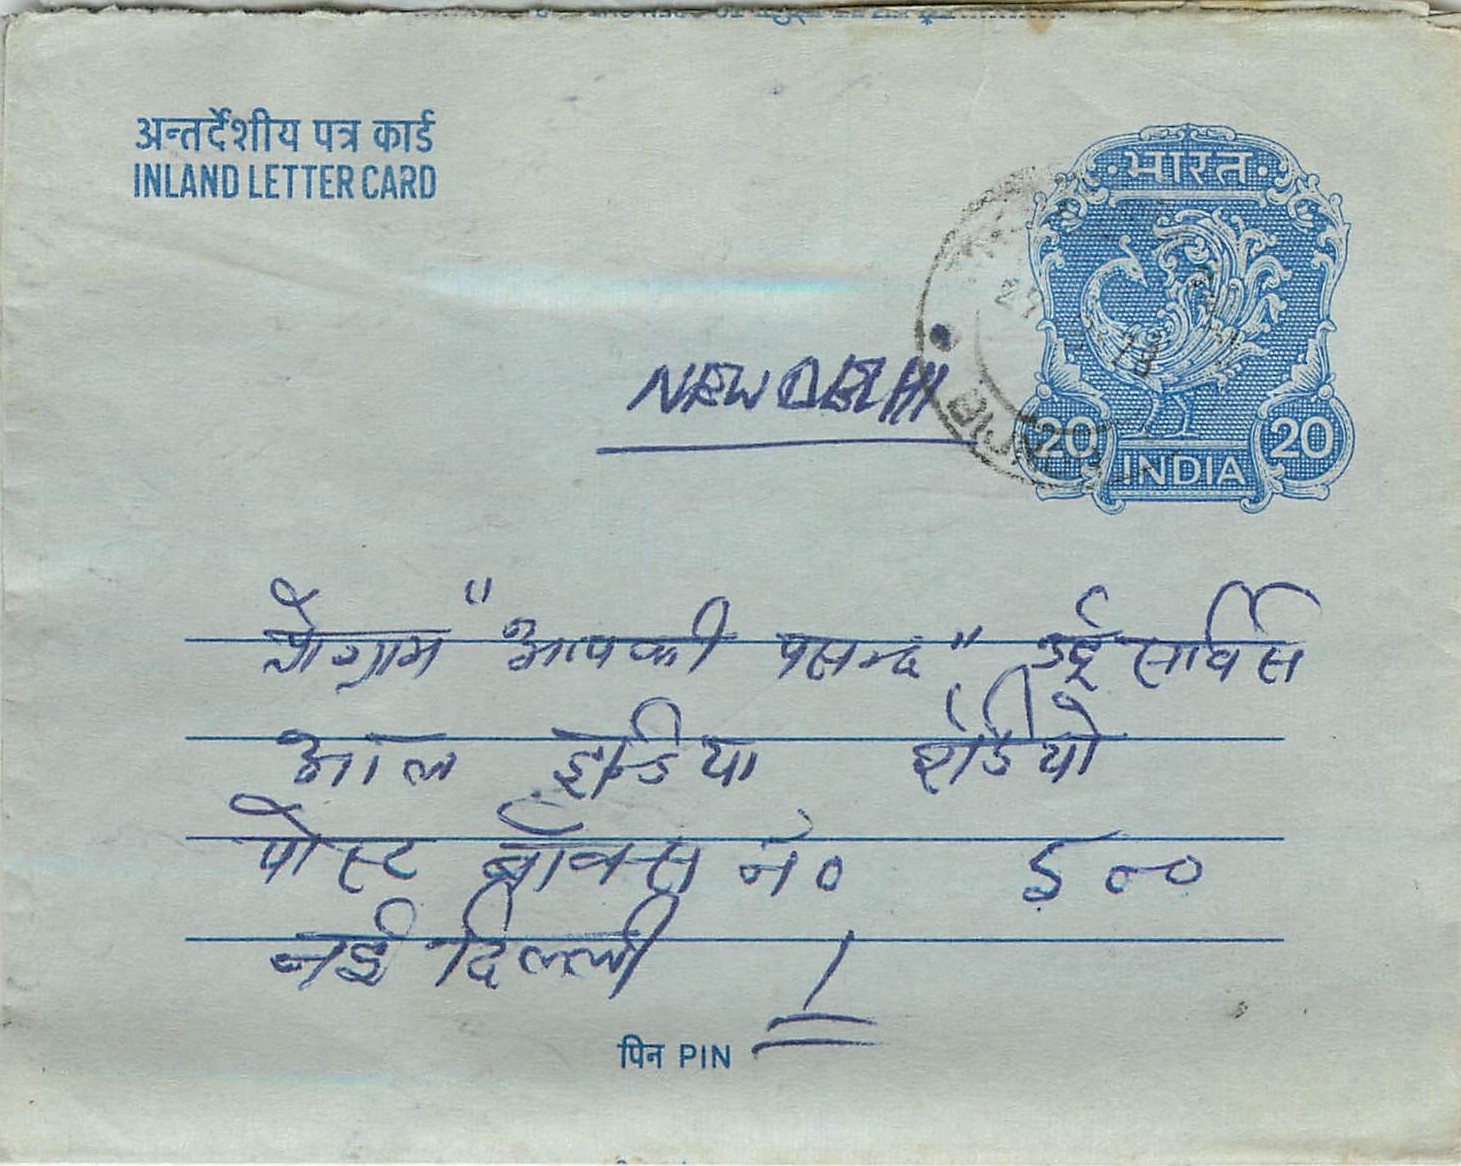 अन्तर्देशीय पत्र कार्ड
INLAND LETTER CARD
भारत
20 INDIA 20
BIJN
NEW DELHI
प्रोग्राम "आपकी पसन्द" उर्दू सर्विस
आल इन्डिया रेडियो
पोस्ट बॉक्स नं०
नई दिल्ली 1
पिन PIN